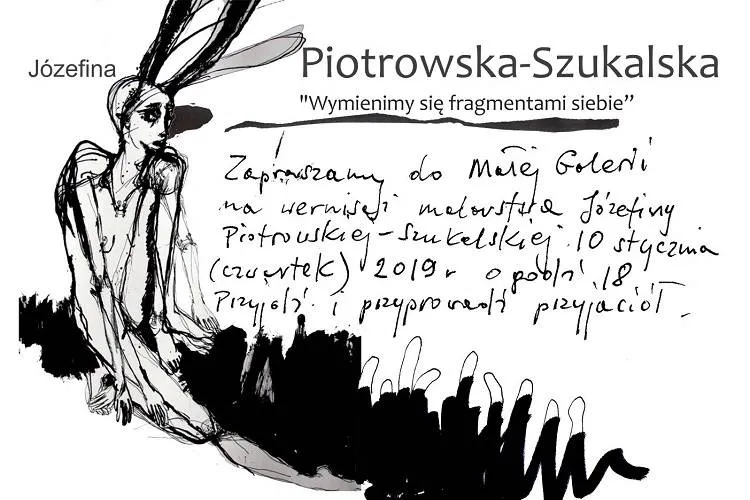 Józefina
Piotrowska-Szukalska
"Wymienimy się fragmentami siebie”
Zapraszamy do Małej Galerii
na wernisaż malarstwa Józefiny
Piotrowskiej-Szukalskiej 10 stycznia
(czwartek) 2019 r o godz. 18
Przyjdź i przyprowadź przyjaciół.